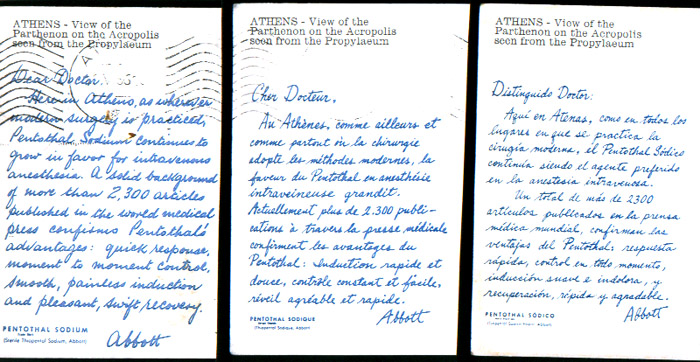 ATHENS - View of the
Parthenon on the Acropolis
seen from the Propylaeum
Dear Doctor,
Here in Athens, as wherever
modern surgery is practiced,
Pentothal Sodium continues to
grow in favor for intravenous
anesthesia. A solid background
of more than 2,300 articles
published in the world medical
press confirms Pentothal's
advantages: quick response,
moment to moment control,
smooth, painless induction
and pleasant, swift recovery.
Abbott
PENTOTHAL SODIUM
(Sterile Thiopental Sodium, Abbott)
ATHENS - View of the
Parthenon on the Acropolis
seen from the Propylaeum
Cher Docteur,
Au Athènes, comme ailleurs et
comme partout où la chirurgie
adopte les méthodes modernes, la
faveur du Pentothal en anesthésie
intraveineuse grandit.
Actuellement plus de 2.300 publi-
cations à travers la presse médicale
confirment les avantages du
Pentothal: Induction rapide et
douce, contrôle constant et facile,
réveil agréable et rapide.
Abbott
PENTOTHAL SODIQUE
(Thiopental Sodique, Abbott)
ATHENS - View of the
Parthenon on the Acropolis
seen from the Propylaeum
Distinguido Doctor:
Aquí en Atenas, como en todos los
lugares en que se practica la
cirugía moderna, el Pentothal Sódico
continúa siendo el agente preferido
en la anestesia intravenosa.
Un total de más de 2300
artículos publicados en la prensa
médica mundial, confirman las
ventajas del Pentothal: respuesta
rápida, control en todo momento,
inducción suave e indolora, y
recuperación, rápida y agradable.
Abbott
PENTOTHAL SODICO
(Thiopental Sódico Estéril, Abbott)